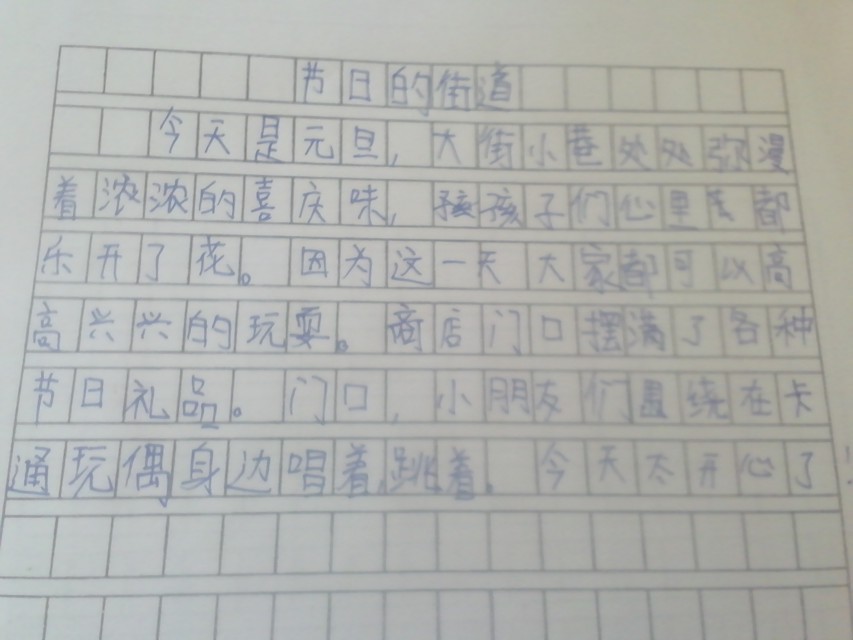 节日的街道
今天是元旦，大街小巷处处弥漫
着浓浓的喜庆味，孩孩子们心里都
乐开了花。因为这一天大家都可以高
高兴兴的玩耍。商店门口摆满了各种
节日礼品。门口，小朋友们围绕在卡
通玩偶身边唱着，跳着。今天太开心了